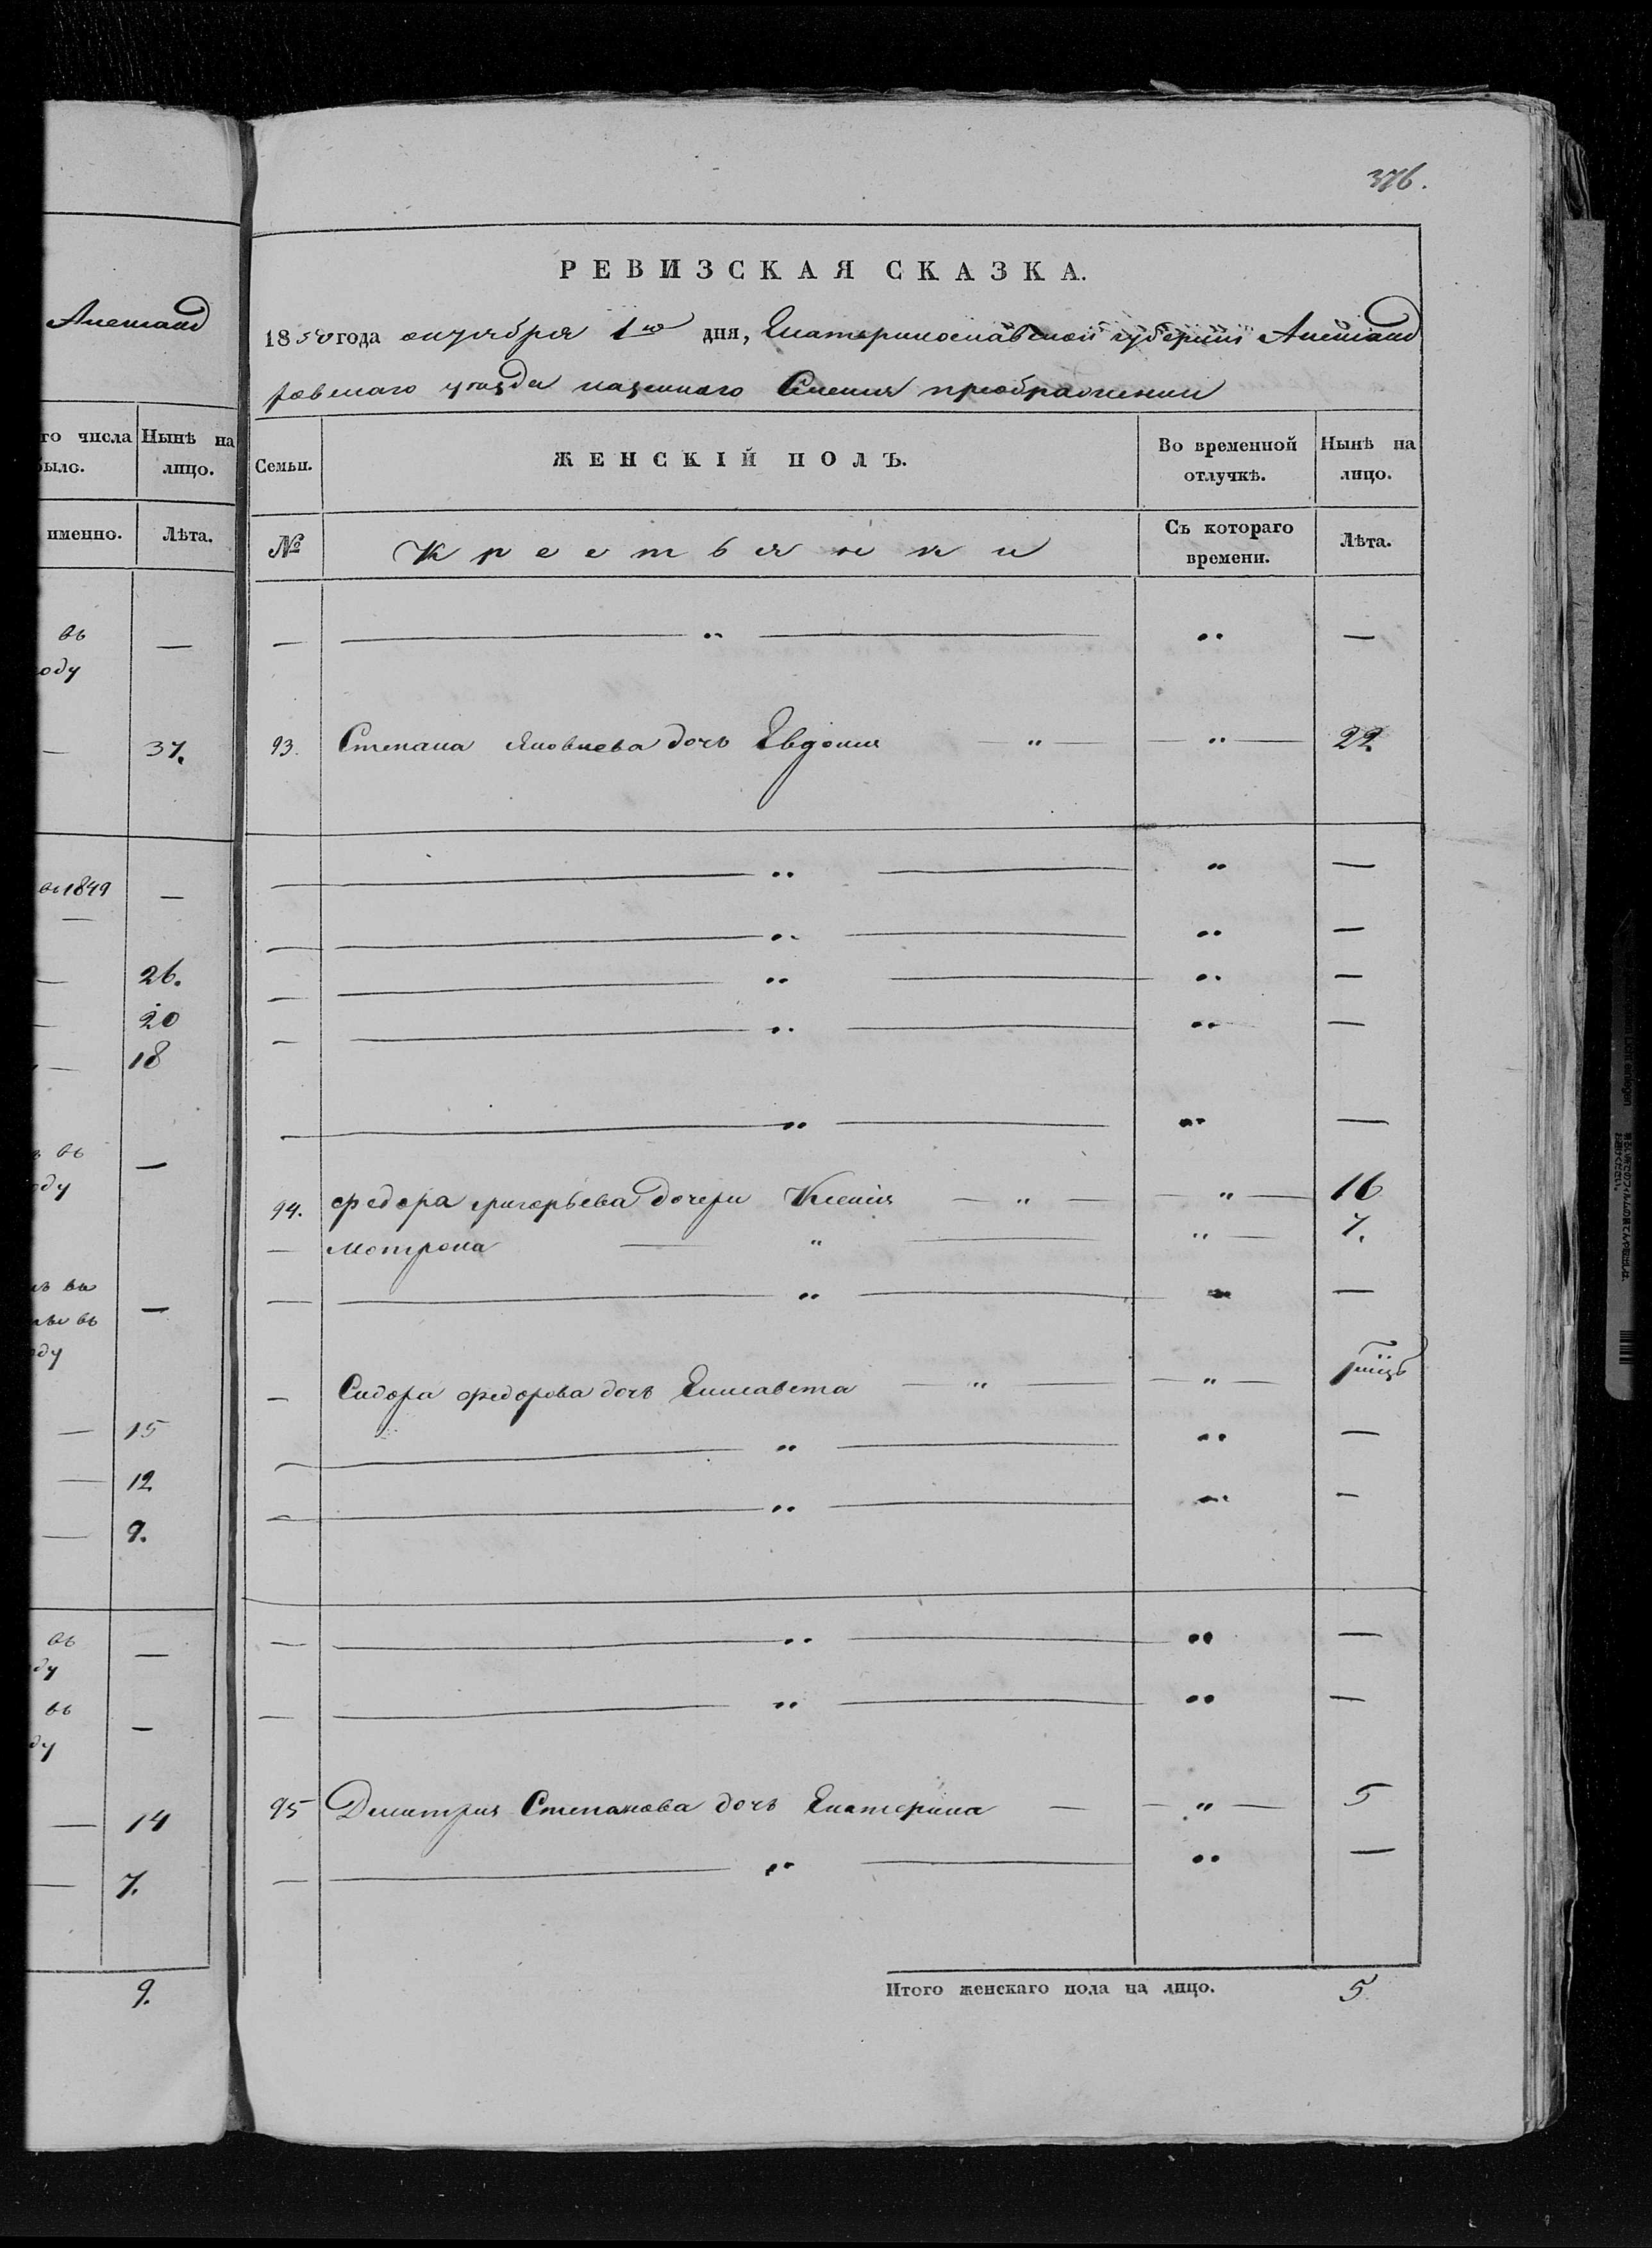 376.
Александ
го числа
было.
Нынѣ на
лицо.
именно.
Лѣта.
въ
оду
—
—
37.
въ 1849
—
—
—
26.
—
20
—
18
въ
оду
—
въ
оду
—
—
15
—
12
—
9.
въ
ду
—
въ
ду
—
—
14
—
7.
9.
РЕВИЗСКАЯ СКАЗКА.
1850 года октября 1го дня, Екатеринославской губерніи Александ
ровскаго уѣзда казеннаго Селенія преображенки
Семьи.
ЖЕНСКІЙ ПОЛЪ.
Во временной
отлучкѣ.
Нынѣ на
лицо.
№
Крестьянки
Съ котораго
времени.
Лѣта.
— — „ — „ —
93. Степана Яковлева дочь Евдокия „ — — „ — 22.
— — „ — „ —
— — „ — „ —
— — „ — „ —
— — „ — „ —
— — „ — „ —
94. федора григорьева дочери Ксенія — „ — — „ — 16
— Мотрона — „ — „ — 7.
— — „ — „ —
— Сидора федорова дочь Елисавета — „ — — „ —
— — „ — „ —
— — „ — „ —
— — „ — „ —
— — „ — „ —
95 Димитрия Степанова дочь Екатерина — — „ — 5
— — „ — „ —
Итого женскаго пола на лицо. 5